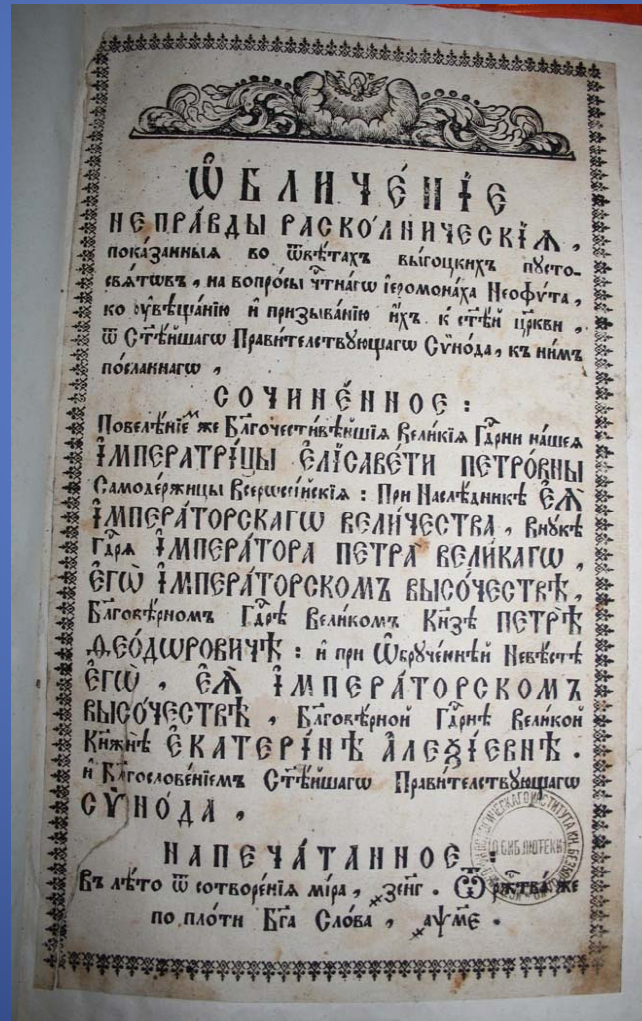 Ѡ҆БЛИЧЕ́НЇЕ
НЕПРА́ВДЫ РАСКО́ЛНИЧЕСКЇѦ,
пока́занныѧ во ѿвѣ́тахъ вы́гоцкихъ пꙋсто-
свѧ́тѡвъ, на вопро́сы че҇тна́гѡ і҆еромона́ха Неофѵ́та,
ко ᲂу҆вѣща́нїю и҆ призыва́нїю и҆́хъ к ст҃ѣ́й цр҃кви,
ѿ Ст҃ѣ́йшагѡ Прави́телствꙋющагѡ Сѵно́да, къ ни̑мъ
по́сланнагѡ,
СОЧИНЕ́ННОЕ:
Повелѣ́нїемъ же Бл҃гочести́вѣйшїѧ Вели́кїѧ Гдⷭ҇рни на́шеѧ
І҆МПЕРАТРИ́ЦЫ Е҆ЛІСАВЕ́ТИ ПЕТРО́ВНЫ
Самоде́ржицы Всерѡссі́йскїѧ: При Наслѣ́дникѣ Е҆Ѧ̀
І҆МПЕРА́ТОРСКАГѠ ВЕЛИ́ЧЕСТВА, Внꙋ́кѣ
Гдⷭ҇рѧ І҆МПЕРА́ТОРА ПЕТРА̀ ВЕЛИ́КАГѠ,
Е҆ГѠ̀ І҆МПЕРА́ТОРСКОМЪ ВЫСО́ЧЕСТВѢ,
Бл҃говѣ́рномъ Гдⷭ҇рѣ Вели́комъ Кн҃зѣ ПЕТРѢ̀
Ѳ҆ЕО́ДѠРОВИЧѢ: и҆ при Ѡ҆брꙋче́ннѣй Невѣ́стѣ
Е҆ГѠ̀, Е҆Ѧ̀ І҆МПЕРА́ТОРСКОМЪ
ВЫСО́ЧЕСТВѢ, Бл҃говѣ́рной Гдⷭ҇рнѣ Вели́кой
Кн҃жнѣ̀ Е҆КАТЕРІ́НѢ А҆ЛЕѮІ́ЕВНѢ.
и҆ Бл҃гослове́нїемъ Ст҃ѣ́йшагѡ Прави́телствꙋющагѡ
СѴНО́ДА,
НАПЕЧА́ТАННОЕ:
Въ лѣ́то ѿ сотворе́нїѧ мі́ра, ҂зснг. Ѿ ржⷭ҇тва́ же
по пло́ти Бг҃а Сло́ва, ҂аѱме.